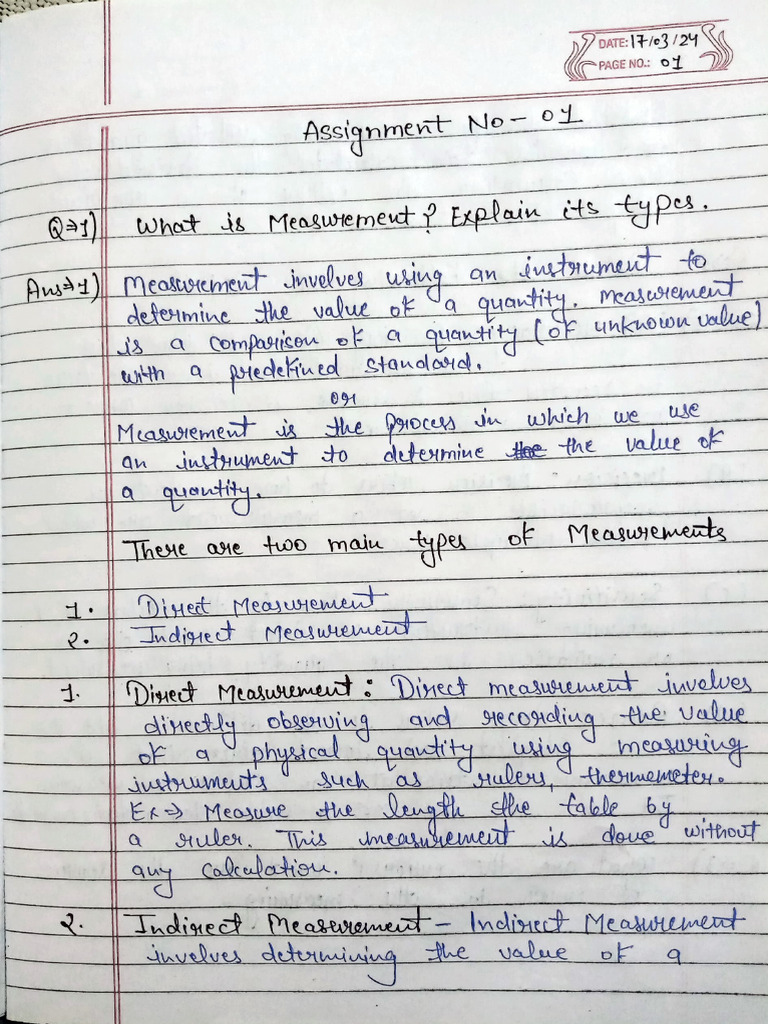 DATE: 17/03/24
PAGE NO.: 01
Assignment No - 01
Q⇒1) What is Measurement? Explain its types.
Ans⇒1) Measurement involves using an instrument to
determine the value of a quantity. Measurement
is a comparison of a quantity (of unknown value)
with a predefined standard.
or
Measurement is the process in which we use
an instrument to determine the the value of
a quantity.
There are two main types of Measurements
1. Direct Measurement
2. Indirect Measurement
1. Direct Measurement: Direct measurement involves
directly observing and recording the value
of a physical quantity using measuring
instruments such as rulers, thermemeter.
Ex⇒ Measure the length the table by
a ruler. This measurement is done without
any calculation.
2. Indirect Measurement - Indirect Measurement
involves determining the value of a